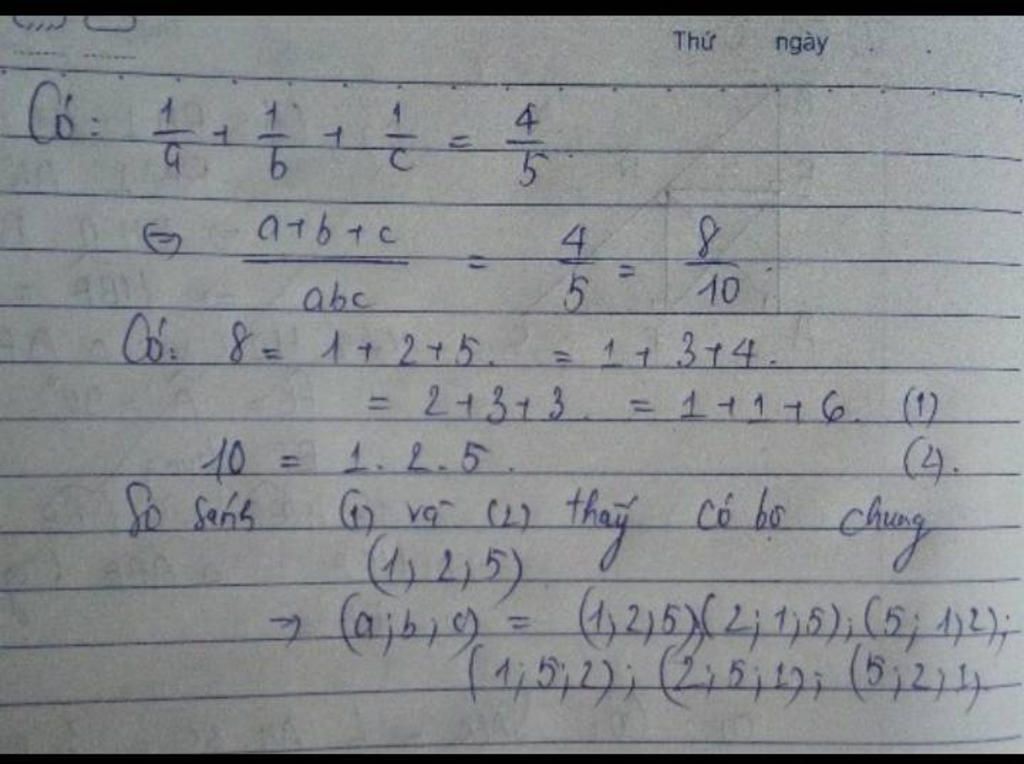 Thứ ngày
Có: 1/a + 1/b + 1/c = 4/5
⇔ a+b+c/abc = 4/5 = 8/10.
Có: 8 = 1+2+5. = 1+3+4.
= 2+3+3. = 1+1+6. (1)
10 = 1.2.5. (2).
So sánh (1) và (2) thấy có bộ chung
(1; 2; 5)
→ (a;b;c) = (1;2;5)(2;1;5);(5;1;2);
(1;5;2); (2;5;1); (5;2;1